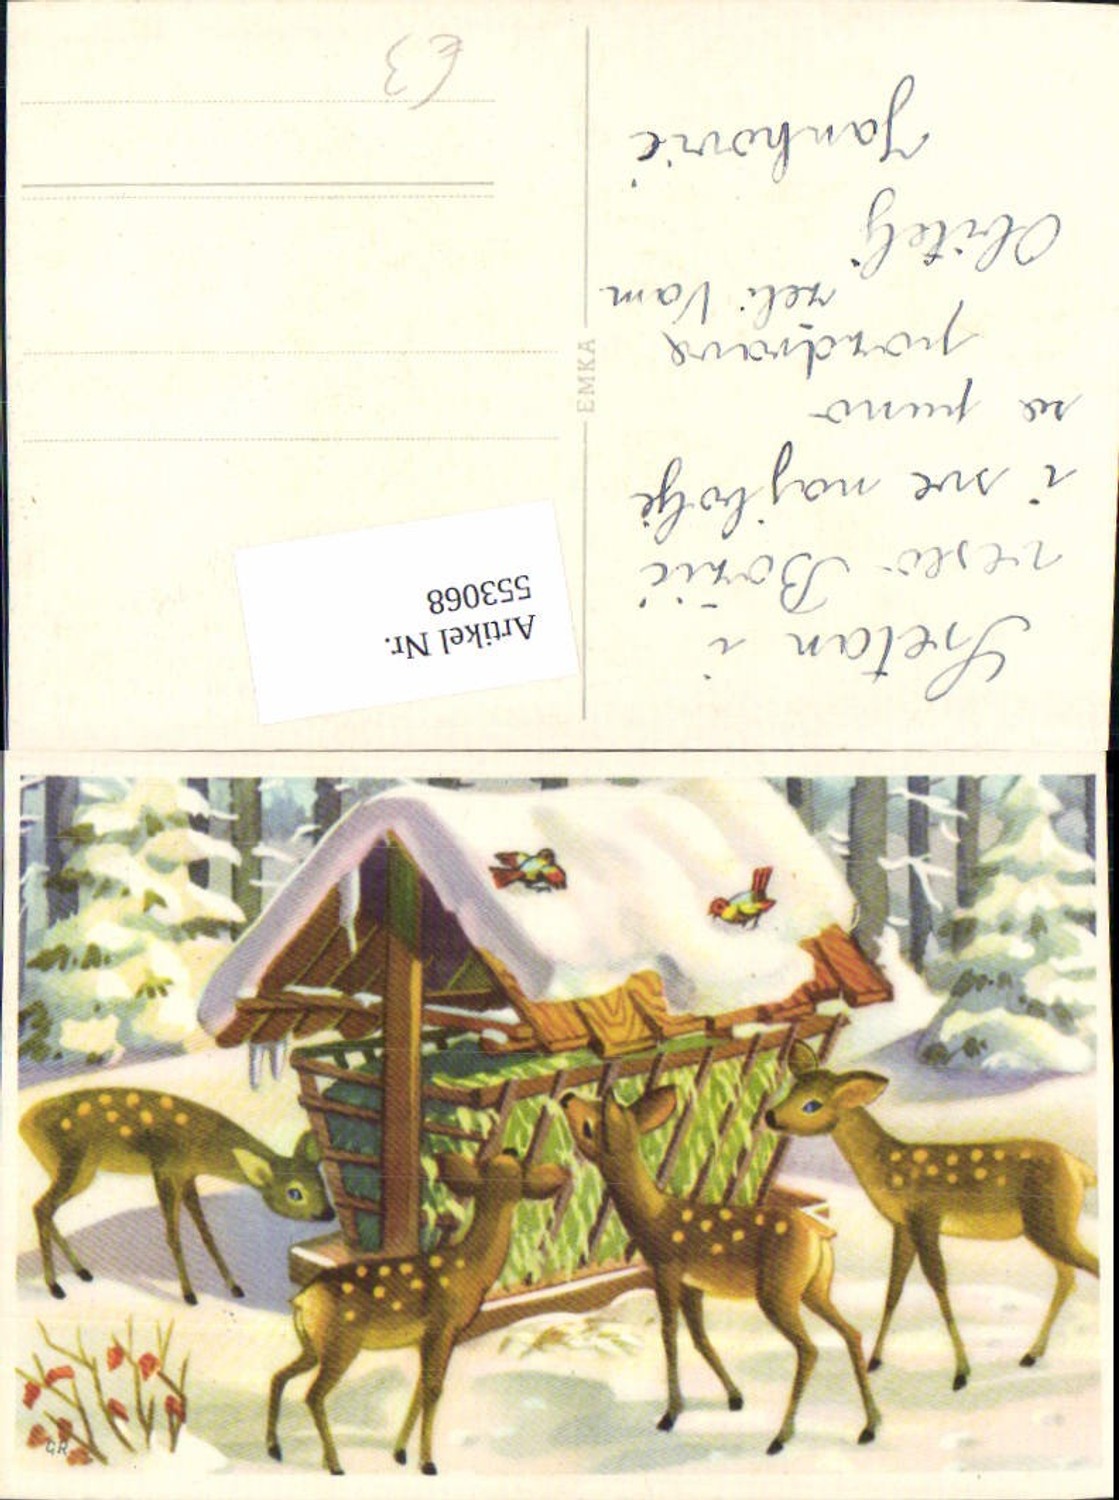 Sretan i
veseo Božić
i sve najbolje
sa puno
pozdrava
želi Vam
Obitelj
Janković
EMKA
Artikel Nr.
553068
€3
GR